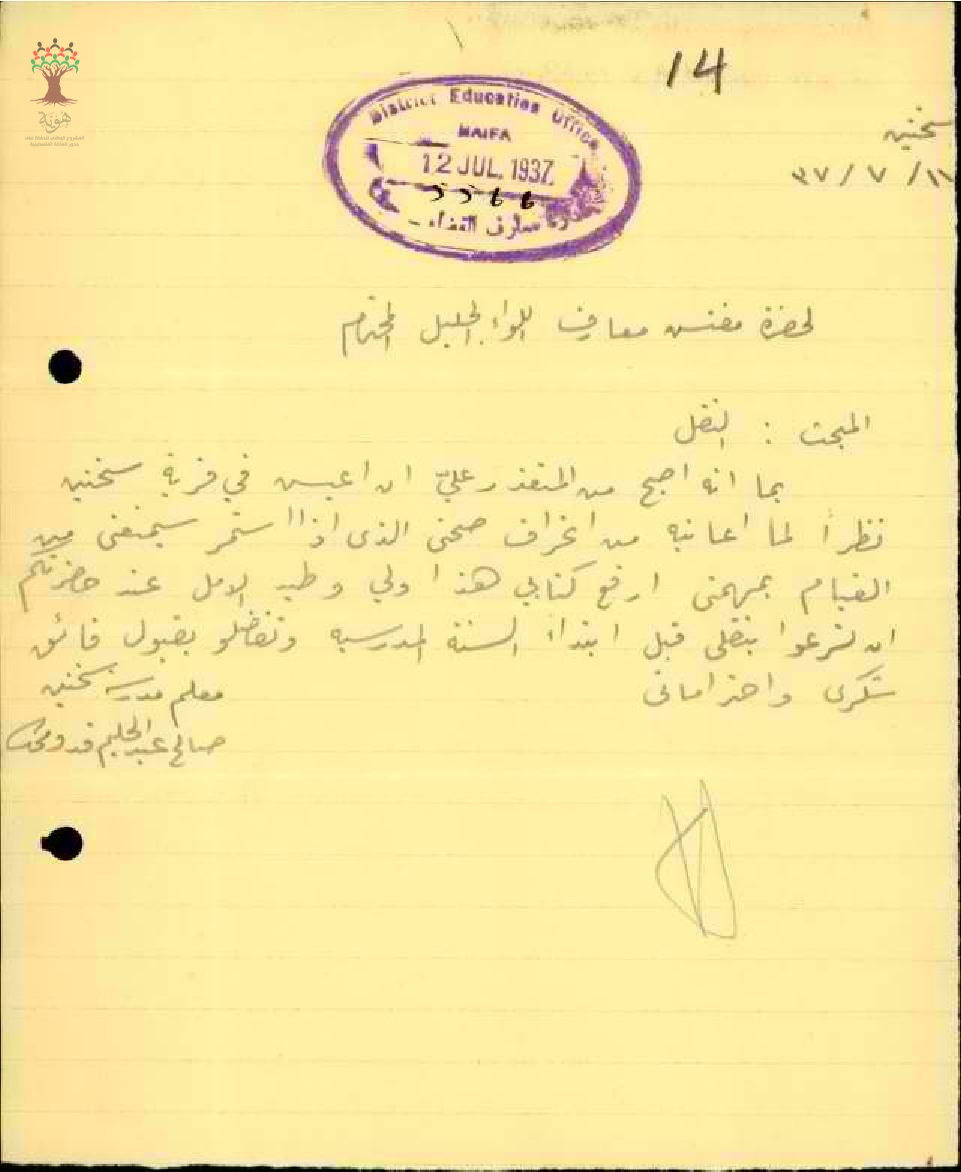 14
District Education Office
HAIFA
12 JUL. 1937
5566
معارف القضاء
سخنين
٣٧ / ٧ / ١١
هوية
لحضرة مفتش معارف اللواء الجليل المحترم
المبحث : النقل
بما انه اصبح من المتعذر عليّ ان اعيش في قرية سخنين
نظراً لما اعانيه من انحراف صحتي الذى اذا استمر سيمنعني من
القيام بمهمتي ارفع كتابي هذا ولي وطيد الامل عند حضرتكم
ان تسرعوا بنقلي قبل ابتداء السنة المدرسيه وتفضلو بقبول فائق
شكرى واحتراماتى
معلم مدرسة سخنين
صالح عبد الحليم